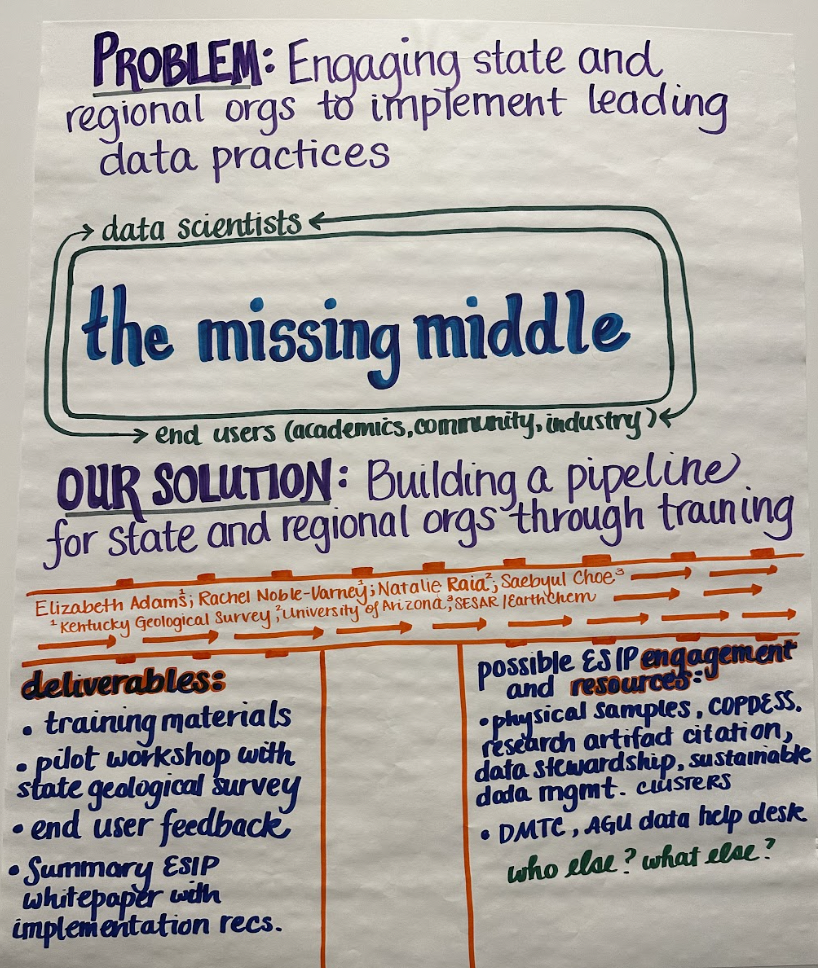 PROBLEM: Engaging state and
regional orgs to implement leading
data practices
data scientists
the missing middle
end users (academics, community, industry)
OUR SOLUTION: Building a pipeline
for state and regional orgs through training
Elizabeth Adams¹; Rachel Noble-Varney¹; Natalie Raia²; Saebyul Choe³
¹Kentucky Geological Survey; ²University of Arizona; ³SESAR/EarthChem
deliverables:
• training materials
• pilot workshop with
state geological survey
• end user feedback
• Summary ESIP
whitepaper with
implementation recs.
possible ESIP engagement
and resources:
• physical samples, COPDESS,
research artifact citation,
data stewardship, sustainable
data mgmt. CLUSTERS
• DMTC, AGU data help desk
who else? what else?